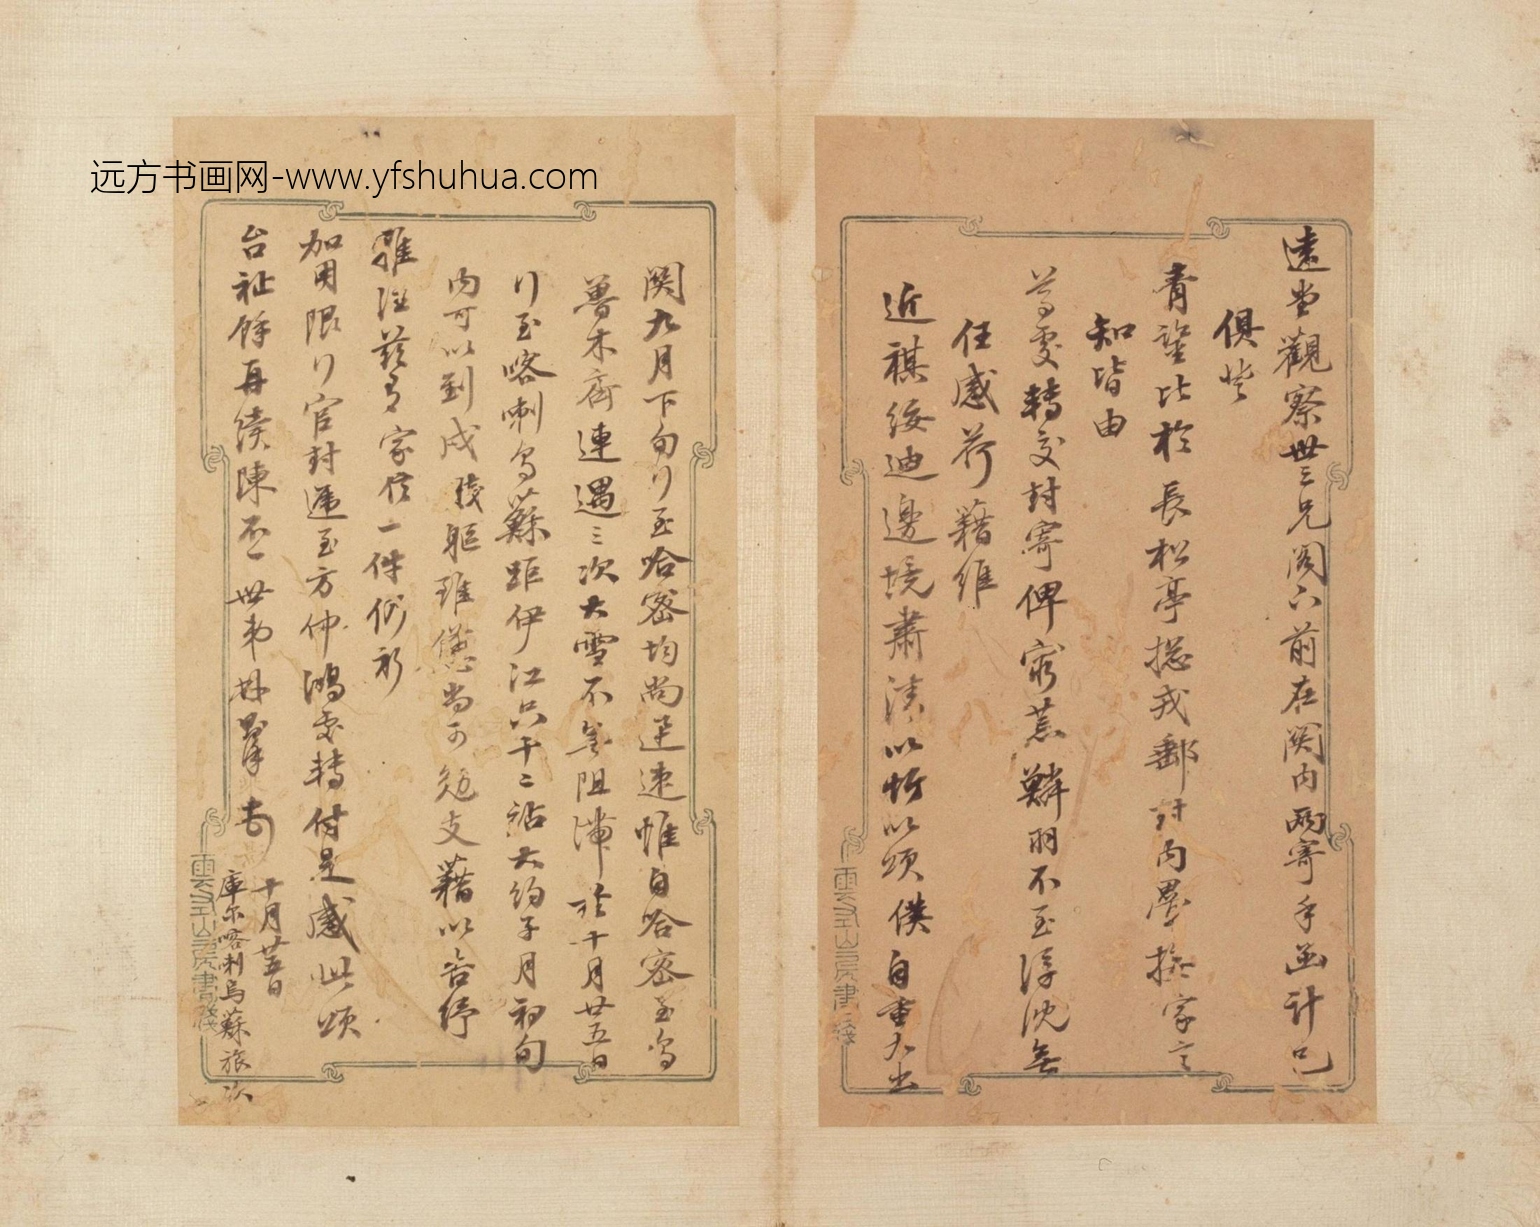 远方书画网-www.yfshuhua.com
遠堂觀察世三兄閣下前在關内兩寄手函計已
俱登
青鑒比於長松亭總戎郵封内壓接家言
知皆由
尊處轉交封寄俾窮荒鱗羽不至浮沈無
任感荷藉維
近祺綏迪邊境肅清以忻以頌僕自重九出
關九月下旬行至哈密均尚迅速惟自哈密至烏
魯木齊連遇三次大雪不無阻滯於十月廿五日
行至喀喇烏蘇距伊江只十二站大約子月初旬
内可以到戍殘軀雖憊尚可勉支藉以告紓
雅注茲有家信一件仍祈
加用限行官封遞至方仲鴻處轉付是感此頌
台祉餘再續陳不一世弟 頓首
十月廿五日
庫尔喀喇烏蘇旅次
雲左山房書箋
雲左山房書箋